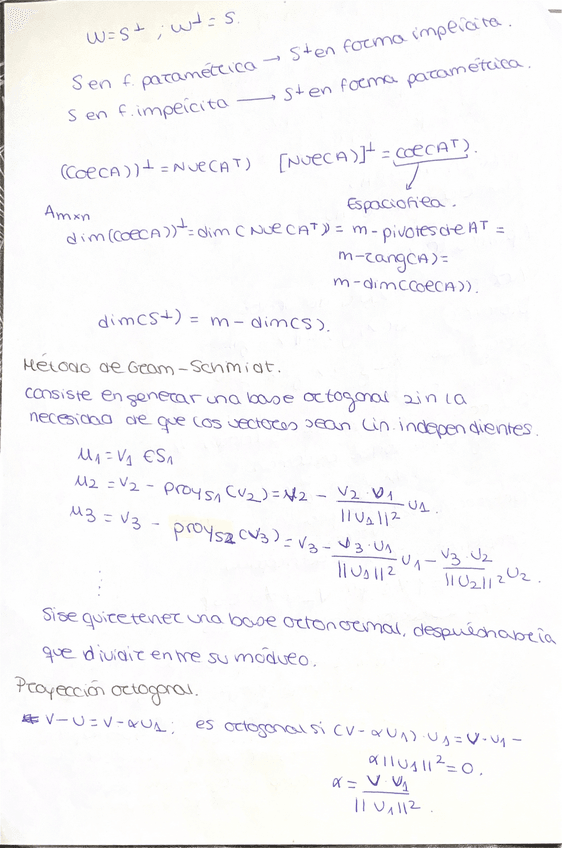 W=S⊥ ; W⊥ = S.
S en f. paramétrica → S⊥ en forma implícita.
S en f. implícita → S⊥ en forma paramétrica.
(Col(A))⊥ = Nul(Aᵀ) [Nul(A)]⊥ = Col(Aᵀ).
Espacio fila.
Amxn
dim(Col(A))⊥ = dim(Nul(Aᵀ)) = m - pivotes de Aᵀ =
m - rang(A) =
m - dim(Col(A)).
dim(S⊥) = m - dim(S).
Método de Gram-Schmidt.
Consiste en generar una base ortogonal sin la
necesidad de que los vectores sean lin. independientes.
u₁ = v₁ ∈ S₁
u₂ = v₂ - proyS₁(v₂) = v₂ - (v₂ · u₁)/||u₁||² u₁.
u₃ = v₃ - proyS₂(v₃) = v₃ - (v₃ · u₁)/||u₁||² u₁ - (v₃ · u₂)/||u₂||² u₂.
⋮
Si se quire tener una base ortonormal, después habría
que dividir entre su módulo.
Proyección ortogonal.
v - u = v - αu₁; es ortogonal si (v - αu₁) · u₁ = v · u₁ -
α||u₁||² = 0.
α = (v · u₁)/||u₁||².